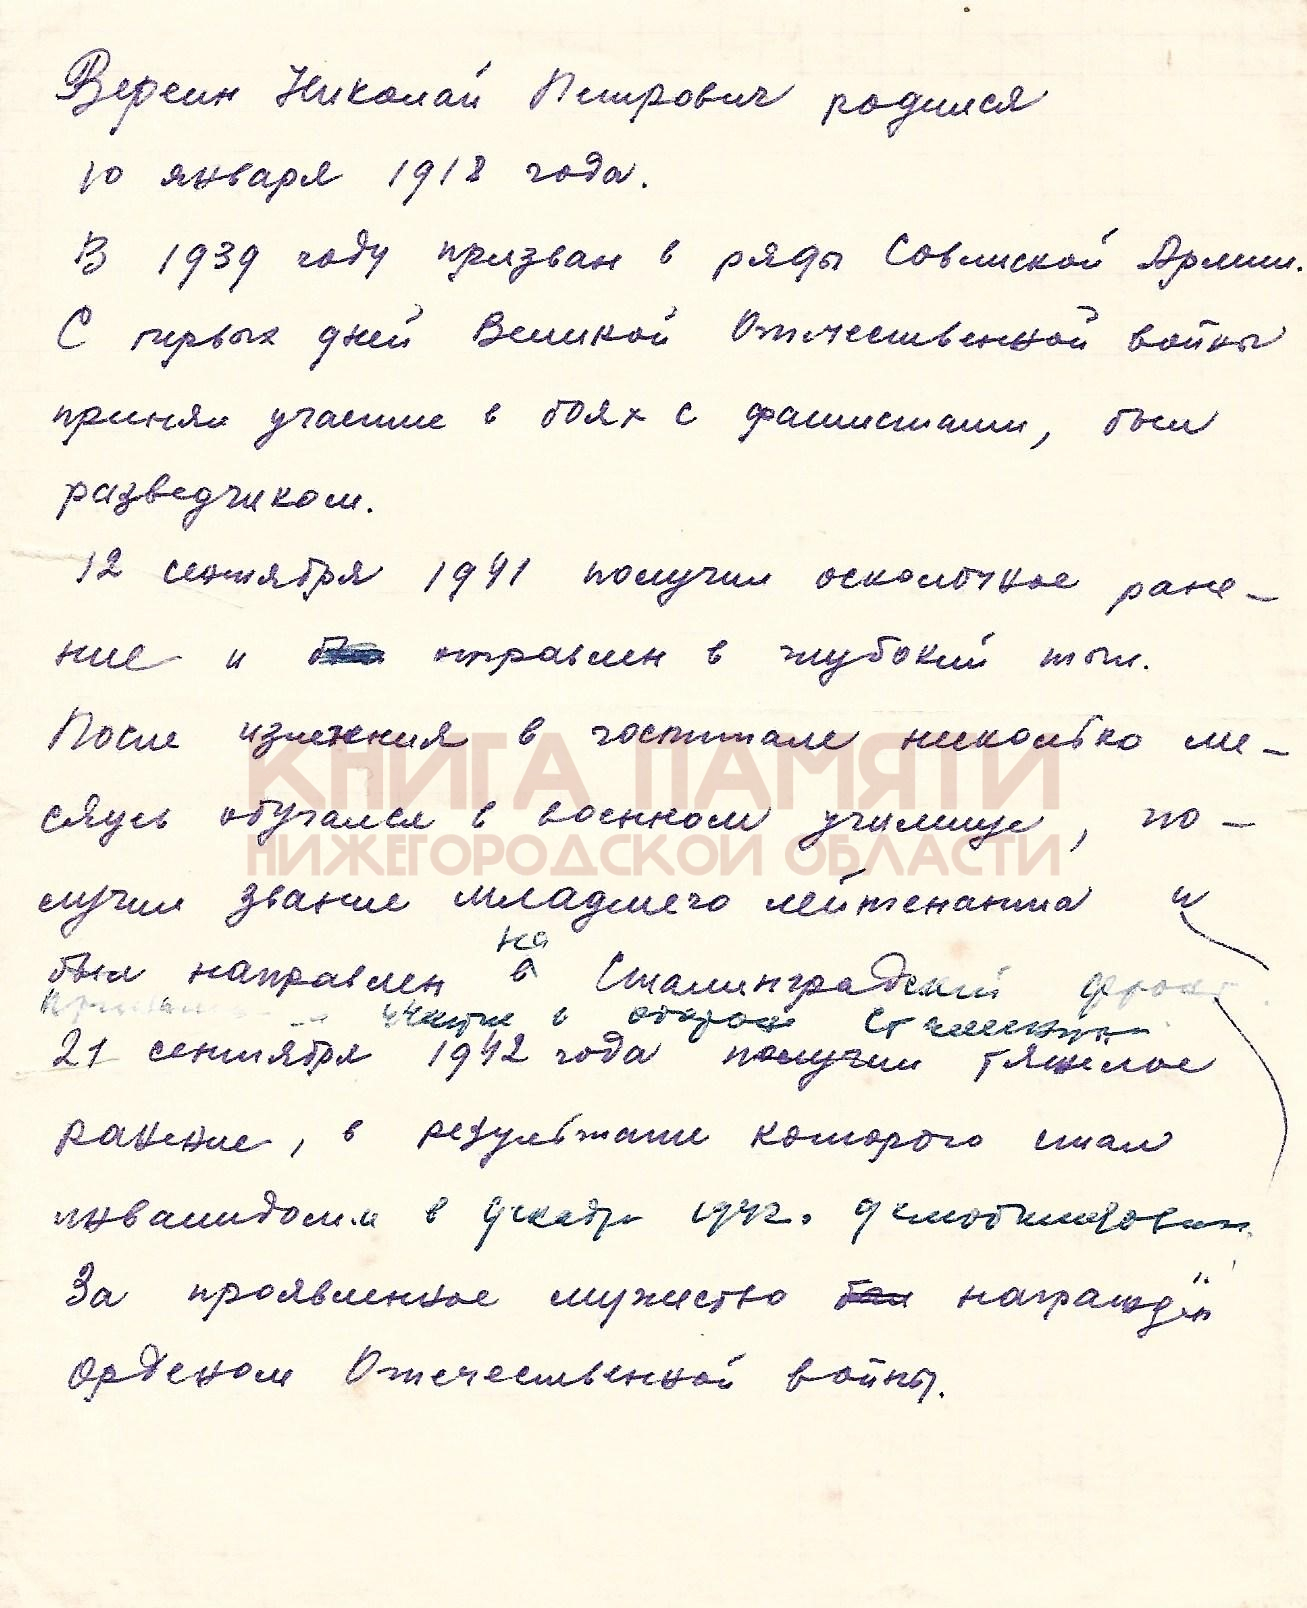 Версин Николай Петрович родился
10 января 1918 года.
В 1939 году призван в ряды Советской Армии.
С первых дней Великой Отечественной войны
принял участие в боях с фашистами, был
разведчиком.
12 сентября 1941 получил осколочное ране-
ние и отправлен в глубокий тыл.
После излечения в госпитале несколько ме-
КНИГА ПАМЯТИ
сяцев обучался в военном училище, по-
НИЖЕГОРОДСКОЙ ОБЛАСТИ
лучил звание младшего лейтенанта и
на
был направлен в Сталинградский фронт.
участие в обороне Сталинграда
21 сентября 1942 года получил тяжёлое
ранение, в результате которого стал
инвалидом и в декабре 1942г. демобилизован.
За проявленное мужество был награждён
Орденом Отечественной войны.